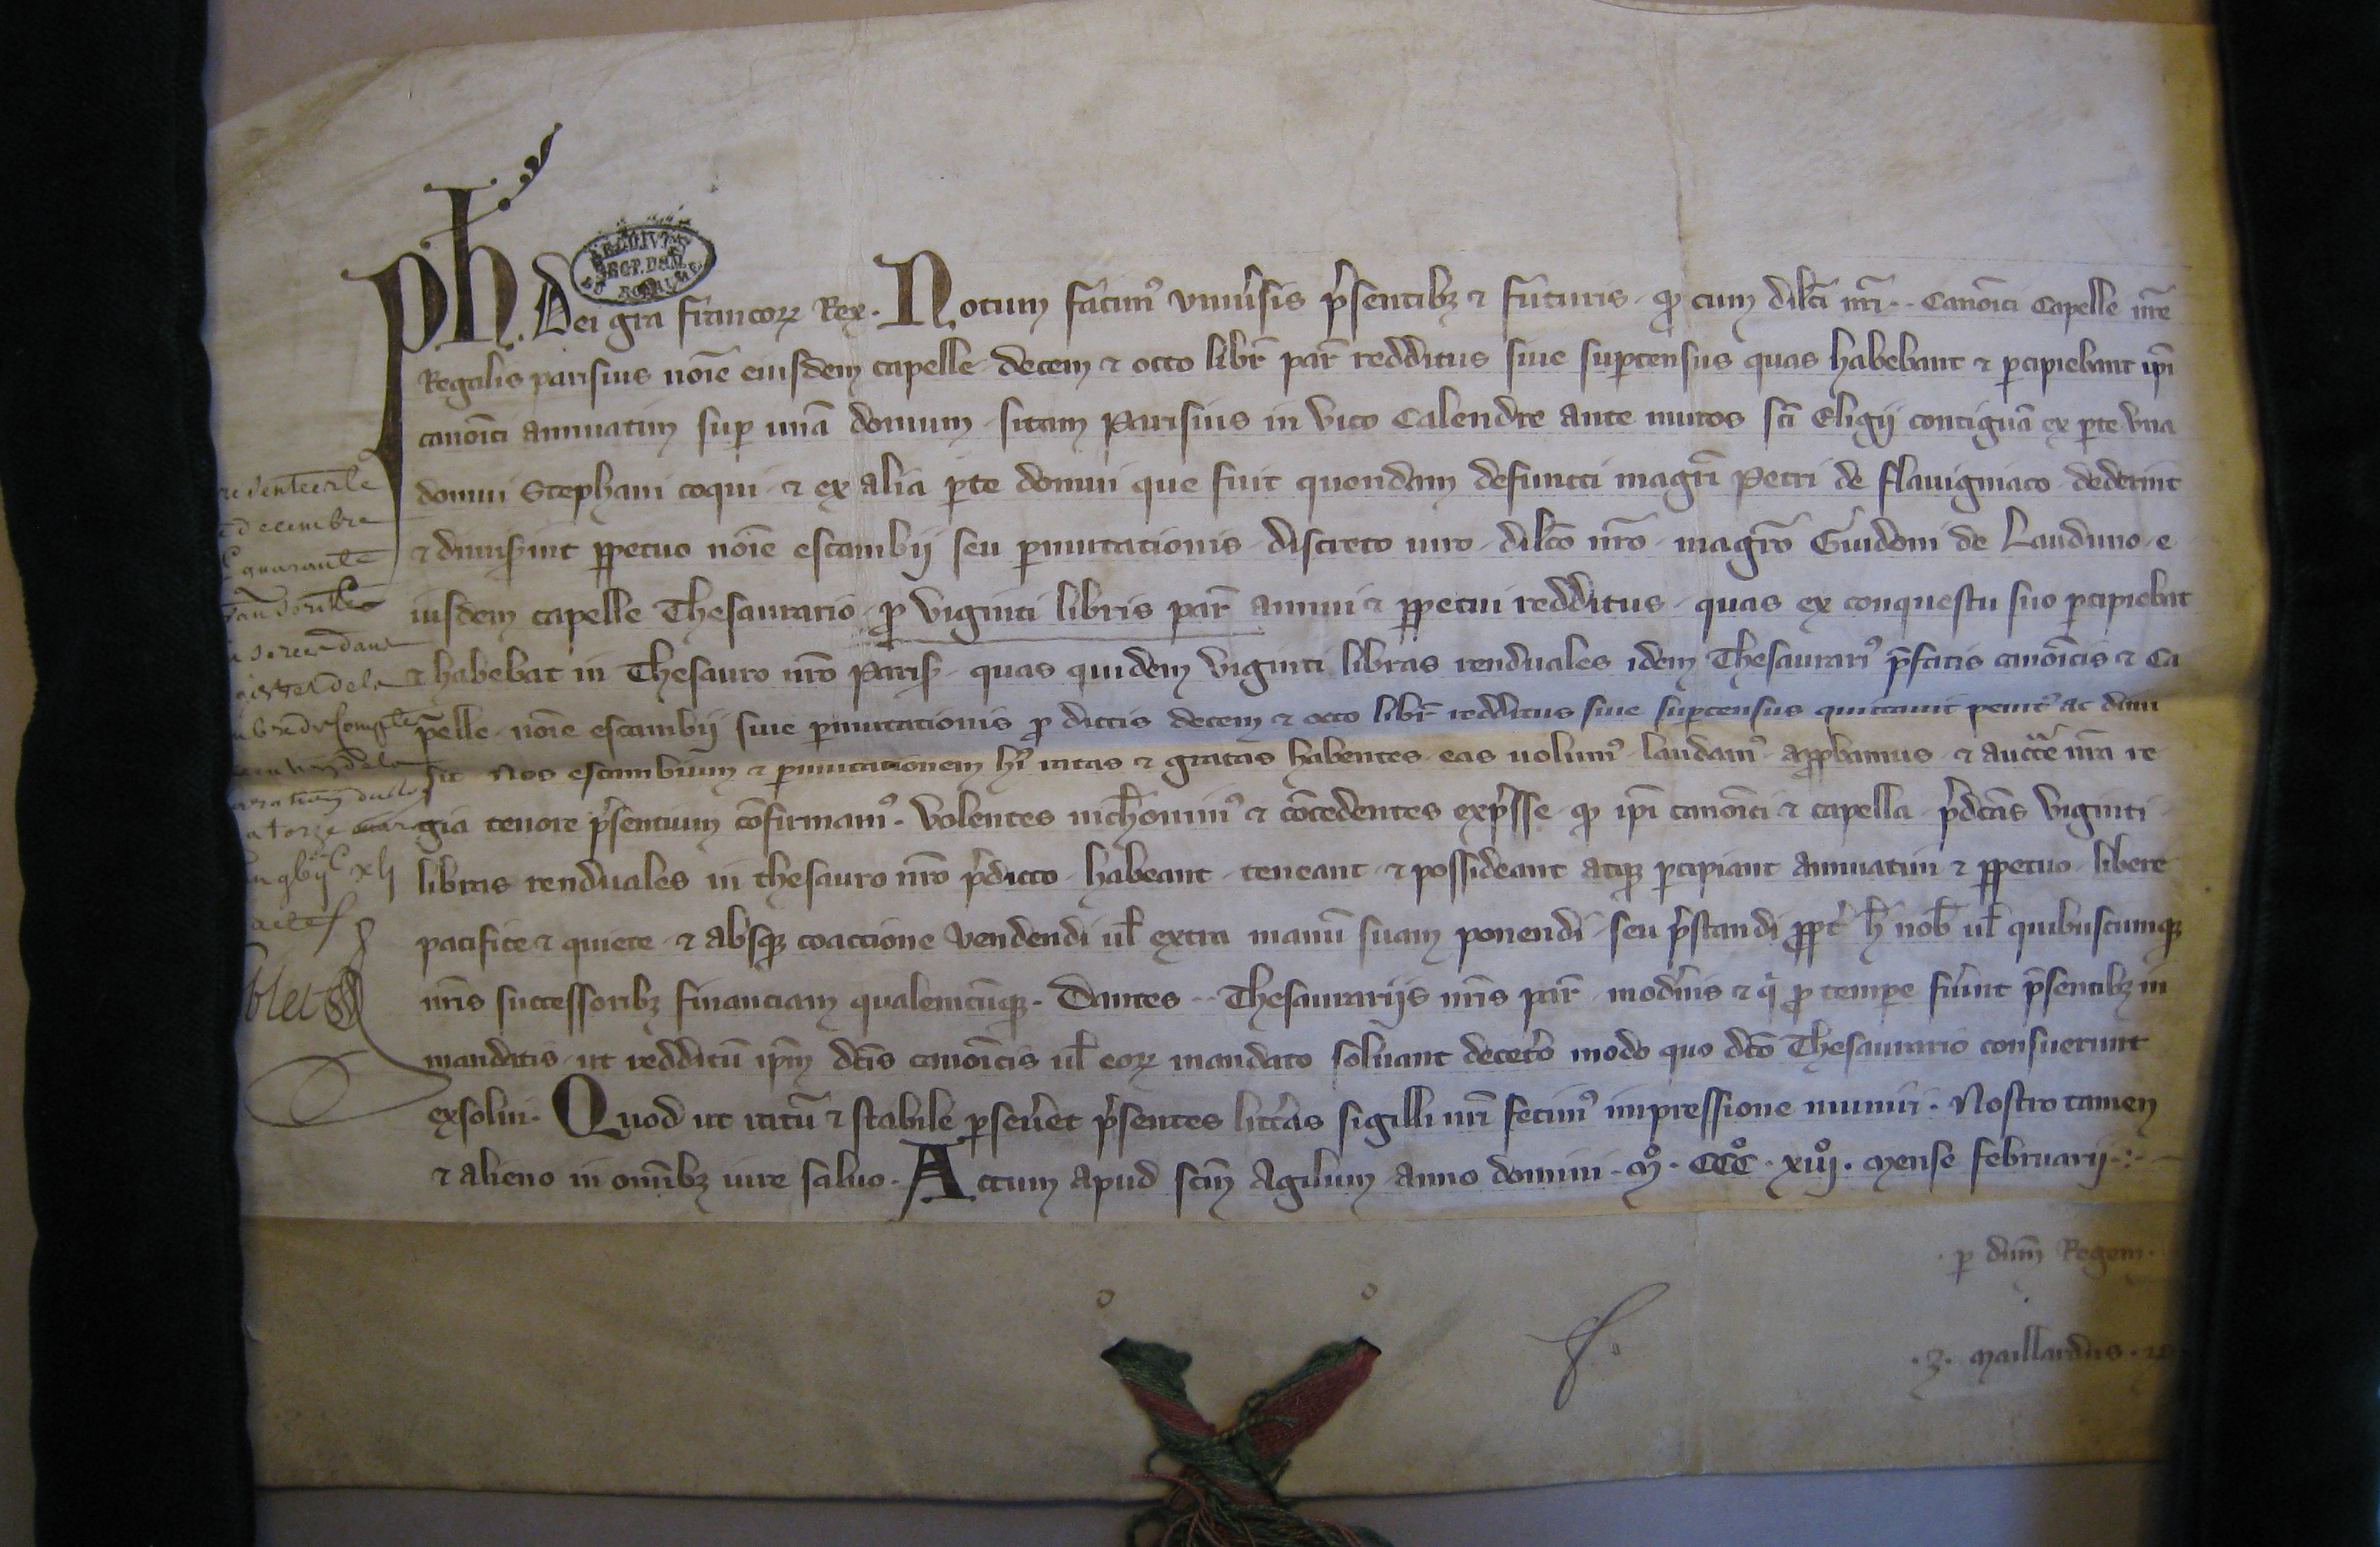 Ph. Dei gra Francoꝝ Rex. Notum facimꝰ vniusis psentibꝫ ⁊ futuris ꝙ cum dilci nri ·· Canoici Capelle nre
Regalis parisius noie eiusdem capelle decem ⁊ octo libr par redditus siue suꝑcensus quas habebant ⁊ ꝑcipiebant ipi
canoici annuatim suꝑ una domum sitam Parisius in vico Calendre ante muros sci Eligij contigua ex ꝑte vna
domui Stephani coqui ⁊ ex alia ꝑte domui que fuit quondam defuncti magri Petri de Flauigniaco dederint
⁊ dimiserint ꝑpetuo noie escambij seu ꝑmutationis discreto uiro dilco nro magro Guidoni de Lauduno e
iusdem capelle Thesaurario ꝓ viginti libris par annui ⁊ ꝑpetui redditus quas ex conquestu suo ꝑcipiebat
⁊ habebat in Thesauro nro Paris quas quidem viginti libras renduales idem Thesaurarꝰ pfatis canoicis ⁊ Ca
pelle noie escambij siue ꝑmutationis ꝓ dictis decem ⁊ octo libr redditus siue suꝑcensus quittauit penitꝰ ac dimi
sit Nos escambium ⁊ ꝑmutationem hꝰ ratas ⁊ gratas habentes eas uolumꝰ laudamꝰ approbamus ⁊ aucte nra re
gia tenore psentium cofirmamꝰ. Volentes nichominꝰ ⁊ cocedentes expsse ꝙ ipi canoici ⁊ capella pdcas viginti
libras renduales in thesauro nro pdicto habeant teneant ⁊ possideant atqꝫ ꝑcipiant annuatim ⁊ ꝑpetuo libere
pacifice ⁊ quiete ⁊ absqꝫ coactione vendendi ul extra manu suam ponendi seu pstandi ppt h nob ul quibuscumqꝫ
nris successoribꝫ financiam qualemcuqꝫ. Dantes ·· Thesaurarijs nris par modnis ⁊ q ꝓ tempe fuint psentibꝫ in
mandatis ut redditu ipm dcis canoicis ul eoꝝ mandato soluant deceto modo quo dco Thesaurario consueuerunt
exsolui. Quod ut ratu ⁊ stabile ꝑseuet psentes litteras sigilli nri fecimꝰ impressione muniri. Nostro tamen
⁊ alieno in omibꝫ iure saluo. Actum apud scm Agilum anno domini. Mº. CCCº. xiijº. Mense Februarij.
decembre
quarante
ꝑ dnm Regem.
Maillardus.